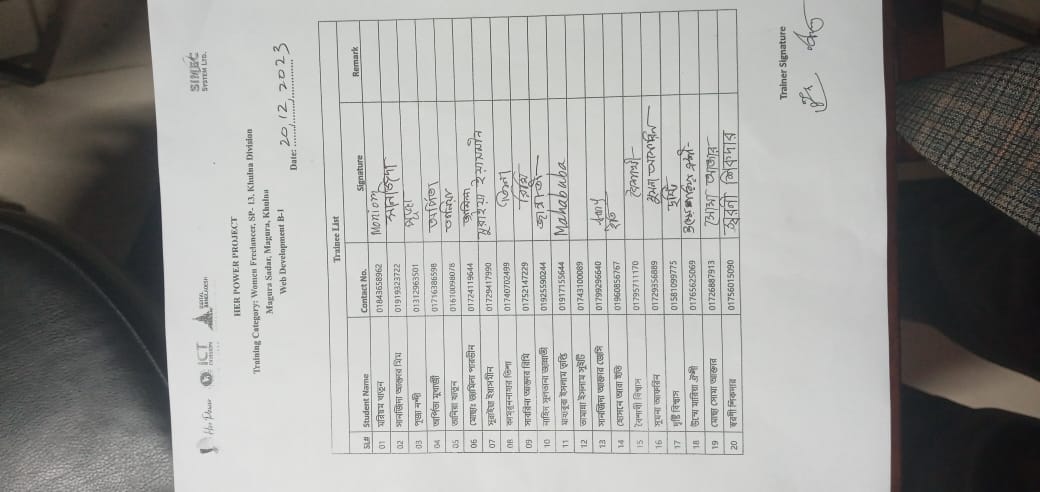 Her Power
ICT
DIVISION
DIGITAL
BANGLADESH
SIMEC
SYSTEM LTD.
HER POWER PROJECT
Training Category: Women Freelancer, SP- 13, Khulna Division
Magura Sadar, Magura, Khulna
Web Development B-1
Date: 20/12/2023
Trainee List
SL# Student Name Contact No. Signature Remark
01 মরিয়ম খাতুন 01843658962 Moniom
02 সানজিদা আক্তার মিম 01919323722 সানজিদা
03 পূজা নন্দী 01312963501 পূজা
04 অর্পিতা মুখার্জী 01716386598 অর্পিতা
05 তানিয়া খাতুন 01610098078 তানিয়া
06 মোছাঃ জামিলা পারভীন 01724119644 জামিলা
07 সুরাইয়া ইয়াসমীন 01729417990 সুরাইয়া ইয়াসমীন
08 কামরুননাহার তিশা 01740702499
09 সাবরিনা আক্তার রিমি 01752147229 রিমি
10 নাহিদ সুলতানা জান্নাতী 01925590244 জান্নাতী
11 মাহবুবা ইসলাম তৃপ্তি 01917155644 Mahabuba
12 তামান্না ইসলাম সুইটি 01743100089
13 সানজিদা আক্তার জেসি 01799296640
14 হোসনে আরা ইতি 01960856767 ইতি
15 বৈশাখী বিশ্বাস 01795711170 বৈশাখী
16 সুমনা আফরিন 01729356889 সুমনা আফরিন
17 দৃষ্টি বিশ্বাস 01581099775 দৃষ্টি
18 উম্মে মারিয়া এ্যানী 01765625069
19 মোছাঃ সোমা আক্তার 01726887913 সোমা আক্তার
20 স্বরণী শিকদার 01756015090 স্বরণী শিকদার
Trainer Signature